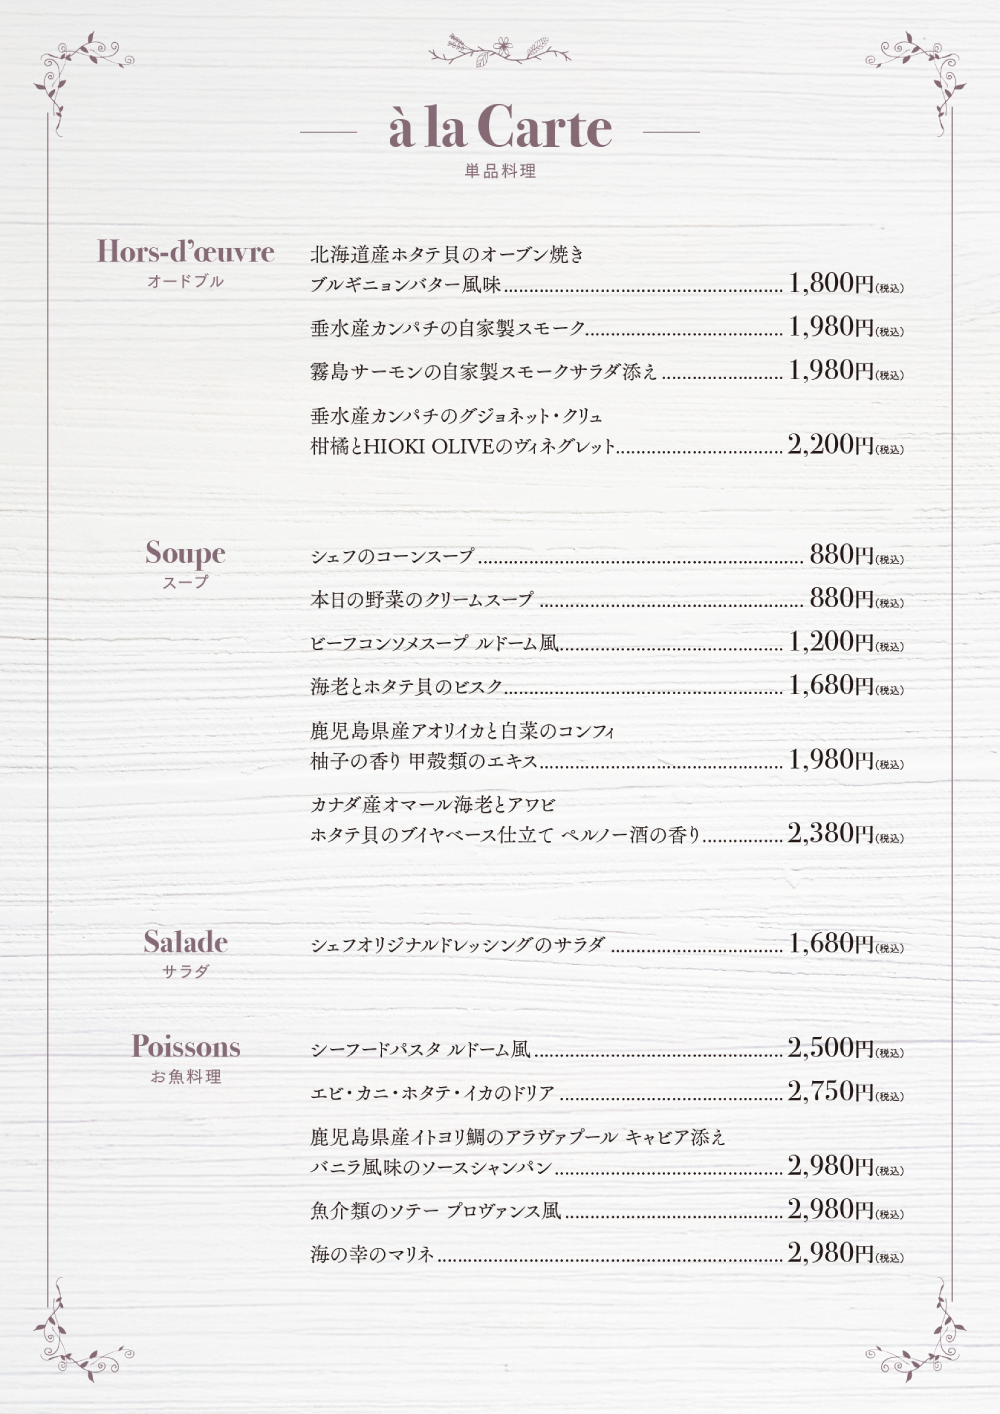 à la Carte
単品料理
Hors-d’œuvre
オードブル
北海道産ホタテ貝のオーブン焼き
ブルギニョンバター風味 1,800円(税込)
垂水産カンパチの自家製スモーク 1,980円(税込)
霧島サーモンの自家製スモークサラダ添え 1,980円(税込)
垂水産カンパチのグジョネット・クリュ
柑橘とHIOKI OLIVEのヴィネグレット 2,200円(税込)
Soupe
スープ
シェフのコーンスープ 880円(税込)
本日の野菜のクリームスープ 880円(税込)
ビーフコンソメスープ ルドーム風 1,200円(税込)
海老とホタテ貝のビスク 1,680円(税込)
鹿児島県産アオリイカと白菜のコンフィ
柚子の香り 甲殻類のエキス 1,980円(税込)
カナダ産オマール海老とアワビ
ホタテ貝のブイヤベース仕立て ペルノー酒の香り 2,380円(税込)
Salade
サラダ
シェフオリジナルドレッシングのサラダ 1,680円(税込)
Poissons
お魚料理
シーフードパスタ ルドーム風 2,500円(税込)
エビ・カニ・ホタテ・イカのドリア 2,750円(税込)
鹿児島県産イトヨリ鯛のアラヴァプール キャビア添え
バニラ風味のソースシャンパン 2,980円(税込)
魚介類のソテー プロヴァンス風 2,980円(税込)
海の幸のマリネ 2,980円(税込)